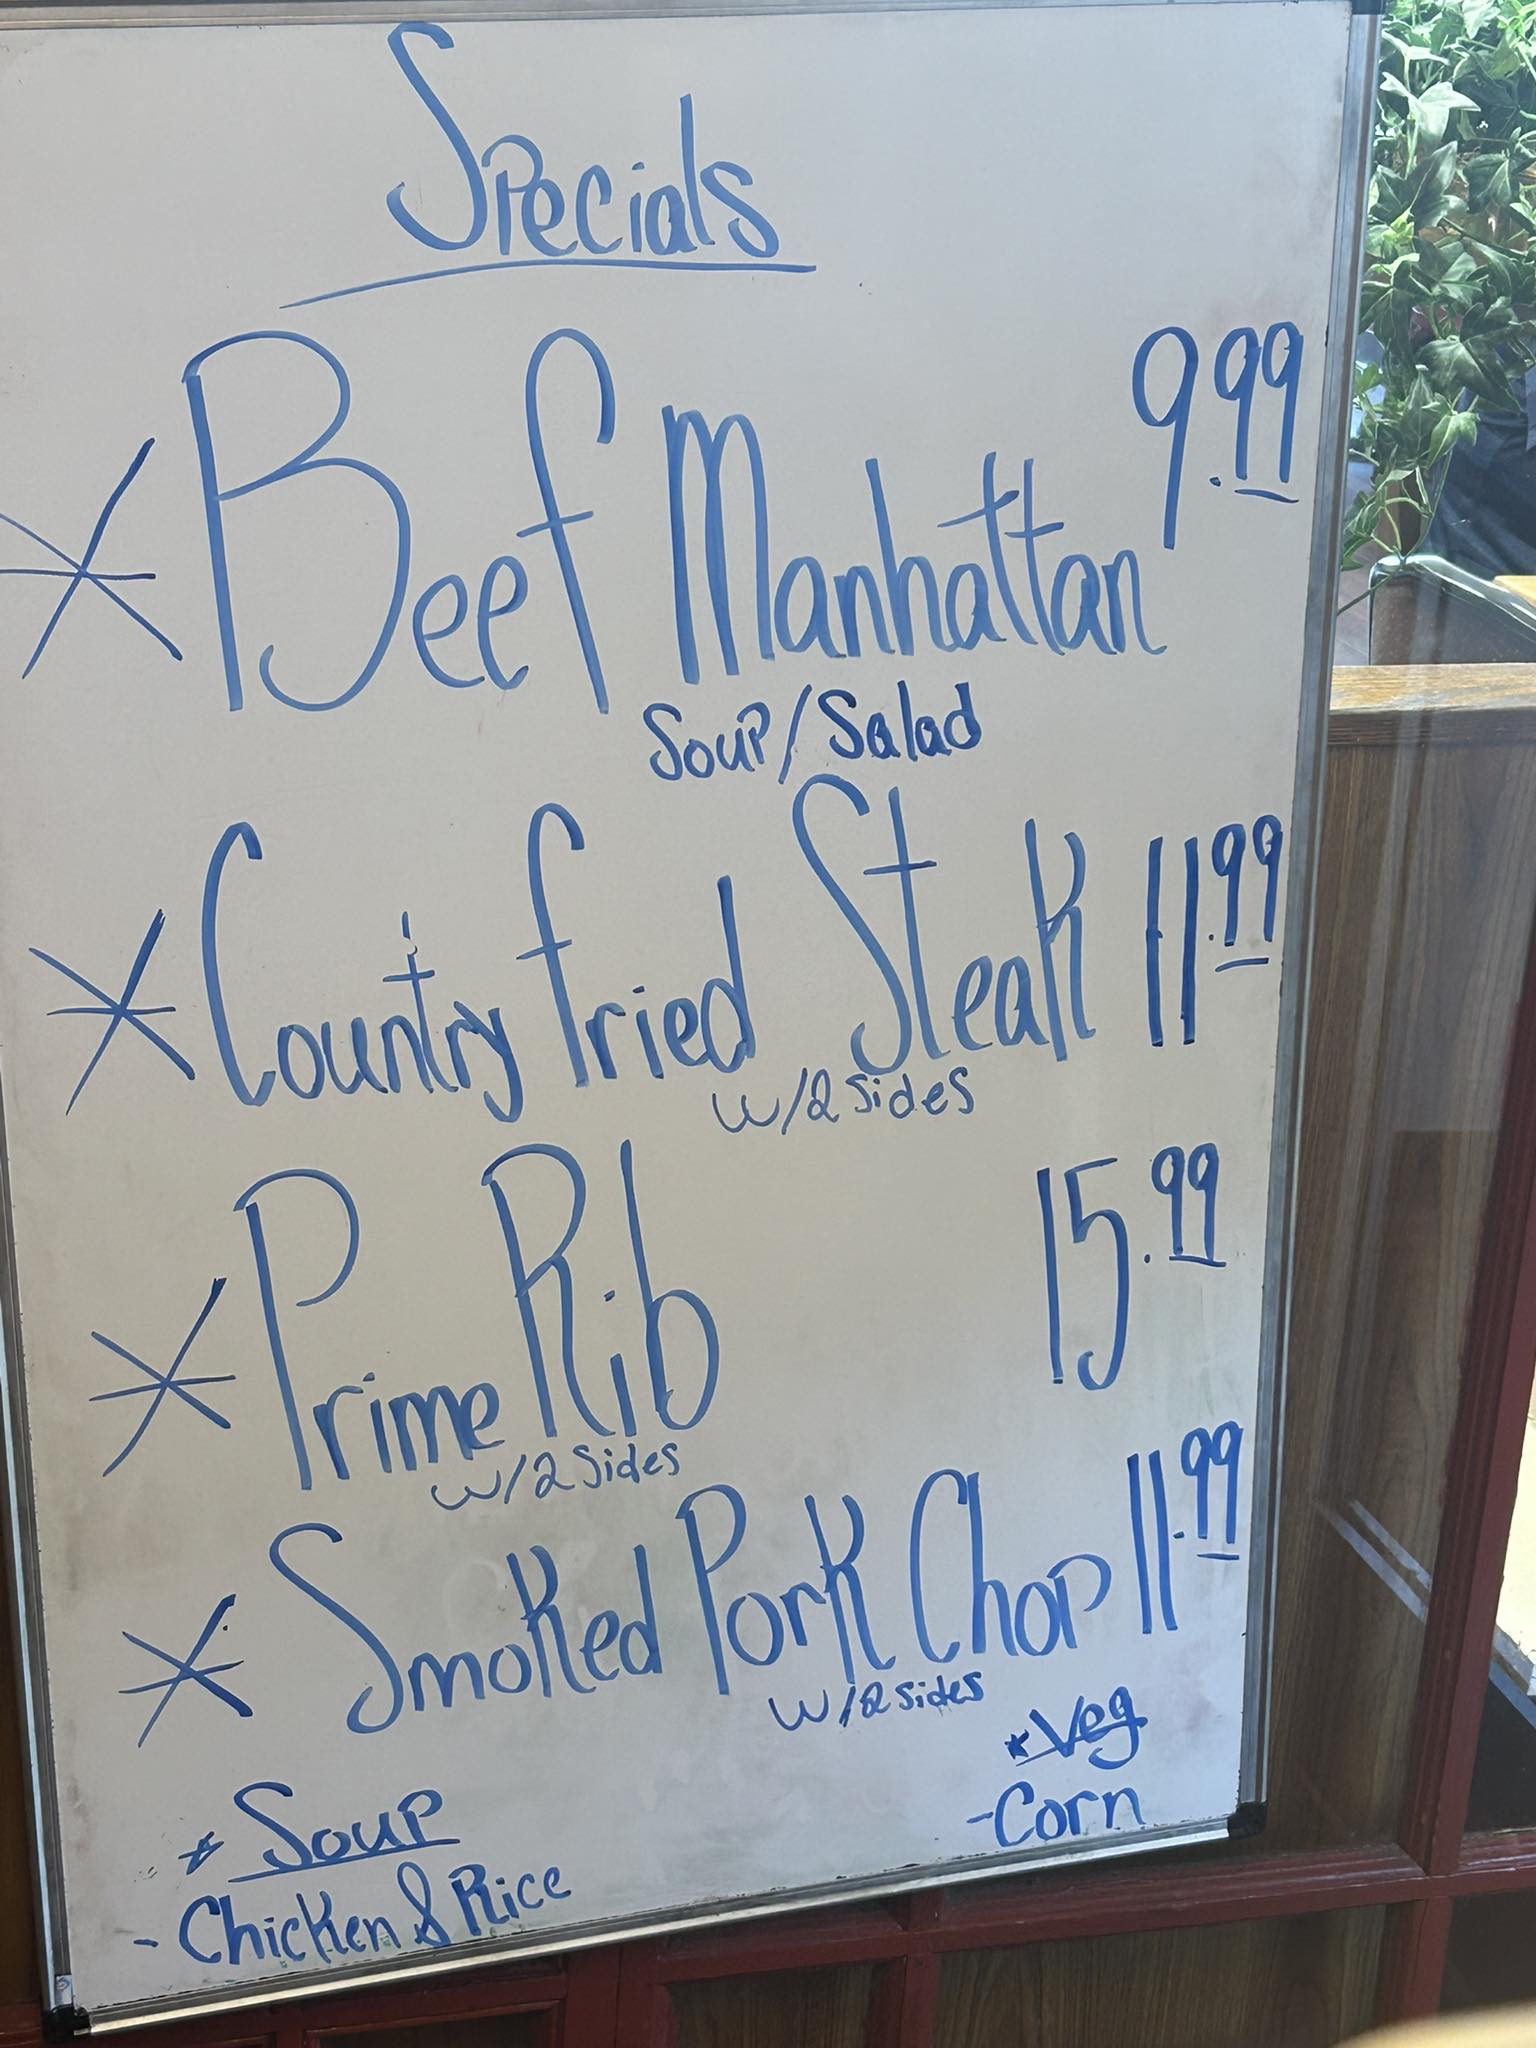 Specials
* Beef Manhattan 9.99
Soup/Salad
* Country fried Steak 11.99
w/2 sides
* Prime Rib 15.99
w/2 sides
* Smoked Pork Chop 11.99
w/2 sides
* Veg
- Corn
* Soup
- Chicken & Rice